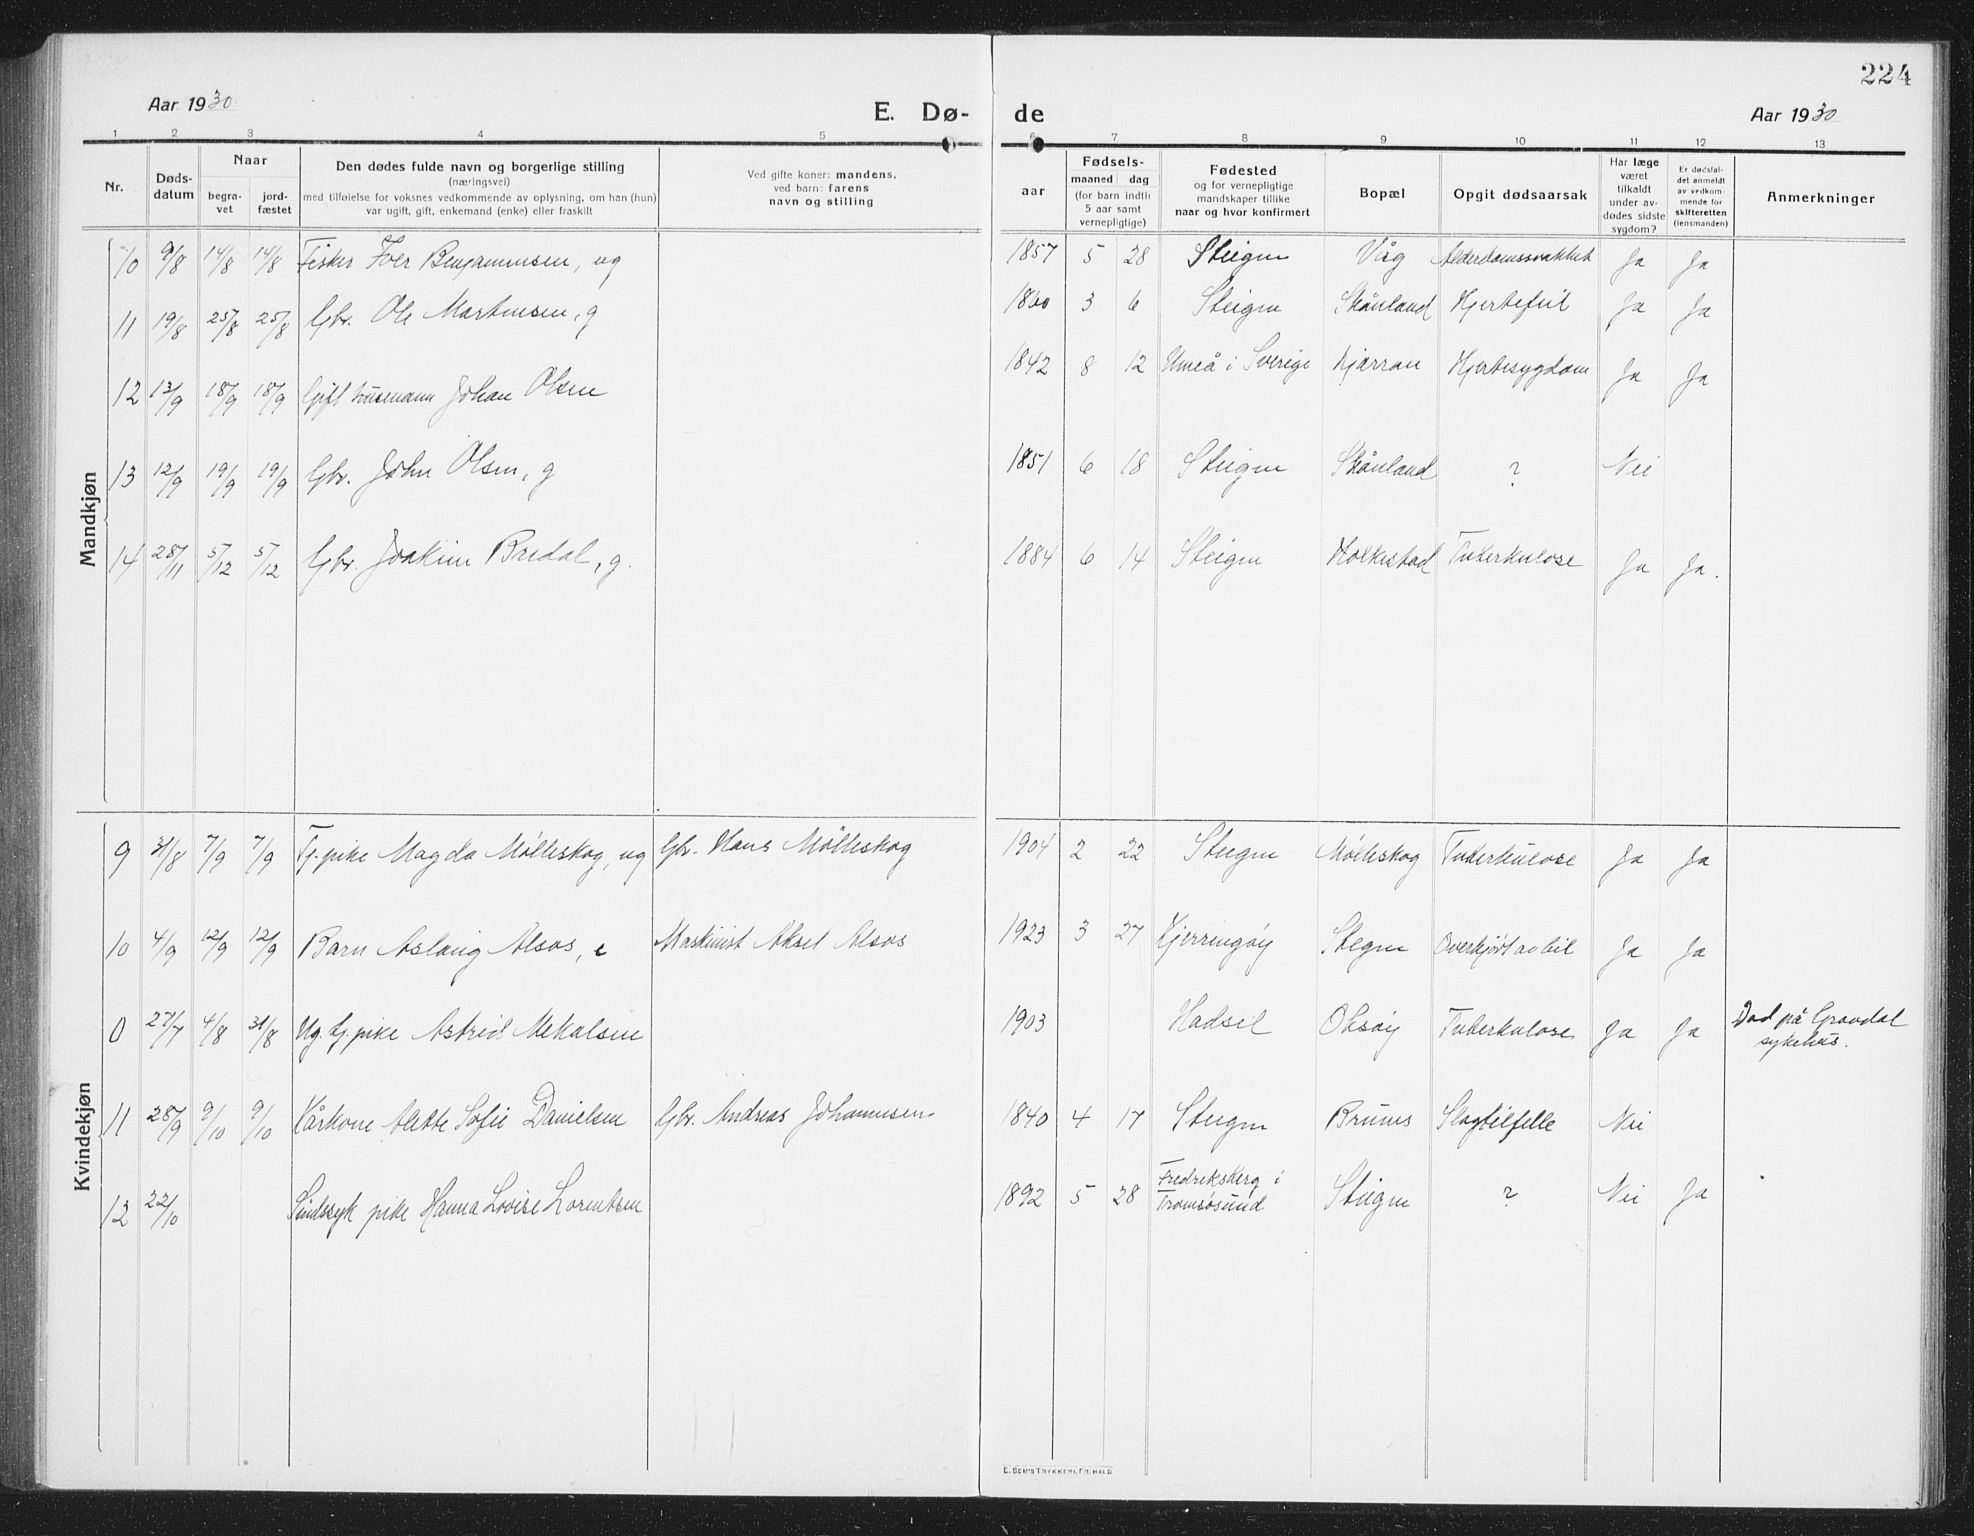 224
Aar 1930
E. Dø- de
Aar 1930
1 2 3 4 5 6 7 8 9 10 11 12 13
Nr.
Døds-
datum
Naar
begra-
vet
jord-
fæstet
Den dødes fulde navn og borgerlige stilling
(næringsvei)
med tilføielse for voksnes vedkommende av oplysning, om han (hun)
var ugift, gift, enkemand (enke) eller fraskilt
Ved gifte koner: mandens,
ved barn: farens
navn og stilling
aar
Fødsels-
maaned dag
(for barn indtil
5 aar samt
vernepligtige)
Fødested
og for vernepligtige
mandskaper tillike
naar og hvor konfirmert
Bopæl
Opgit dødsaarsak
Har læge
været
tilkaldt
under av-
dødes sidste
sygdom?
Er dødsfal-
det anmeldt
av vedkom-
mende for
skifteretten
(lensmanden)
Anmerkninger
Mandkjøn
10 9/8 14/8 14/8 Fisker Iver Benjaminsen, ug 1857 5 28 Steigen Våg Alderdomssvakhet Ja Ja
11 19/8 25/8 25/8 Gbr. Ole Martinsen, g 1860 3 6 Steigen Skånland Hjertefeil Ja Ja
12 13/9 18/9 18/9 Gift husmann Johan Olsen 1842 8 12 Umeå i Sverige Kjærran Hjertesygdom Ja Ja
13 12/9 19/9 19/9 Gbr. John Olsen, g 1851 6 18 Steigen Skånland ? Nei
14 28/11 5/12 5/12 Gbr. Joakim Bredal, g. 1884 6 14 Steigen Holkestad Tuberkulose Ja Ja.
Kvindekjøn
9 31/8 7/9 7/9 Tj.pike Magda Mølleskog, ug Gbr. Hans Mølleskog 1904 2 22 Steigen Mølleskog Tuberkulose Ja Ja
10 4/9 12/9 12/9 Barn Aslaug Alsos, e Maskinist Aksel Alsos 1923 3 27 Kjerringøy Steigen Overkjørt av bil Ja Ja
0 27/7 4/8 31/8 Ug. tj.pike Astrid Mekalsen 1903 Hadsel Oksøy Tuberkulose Ja Ja Død på Gravdal
sykehus.
11 28/9 9/10 9/10 Kårkone Alette Sofie Danielsen Gbr. Andreas Johannesen 1840 4 17 Steigen Brunes Slagtilfelle Nei
12 22/10 Sindssyk pike Hanna Lovise Lorentsen 1892 5 28 Fredriksberg i
Tromsøsund Steigen ? Nei Ja
E. SEM'S TRYKKERI, FR.HALD